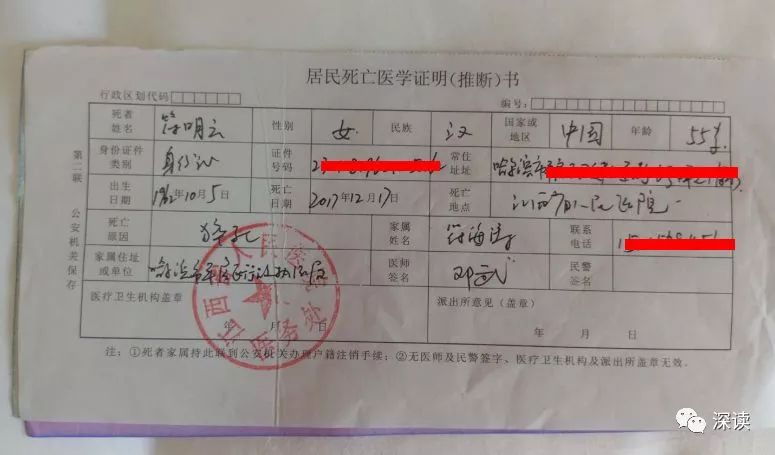 居民死亡医学证明(推断)书
行政区划代码 编号:
死者姓名 符明云 性别 女 民族 汉 国家或地区 中国 年龄 55岁
身份证件类别 身份证 证件号码 23 常住地址 哈尔滨市
出生日期 1962年10月5日 死亡日期 2017年12月17日 死亡地点 江西省人民医院
死亡原因 猝死 家属姓名 符海涛 联系电话 15
家属住址或单位 哈尔滨市 医师签名 邓武 民警签名
医疗卫生机构盖章 派出所意见(盖章)
年 月 日 年 月 日
注:①死者家属持此联到公安机关办理户籍注销手续;②无医师及民警签字、医疗卫生机构及派出所盖章无效。
第二联 公安机关保存
江西省人民医院
医务处
深读